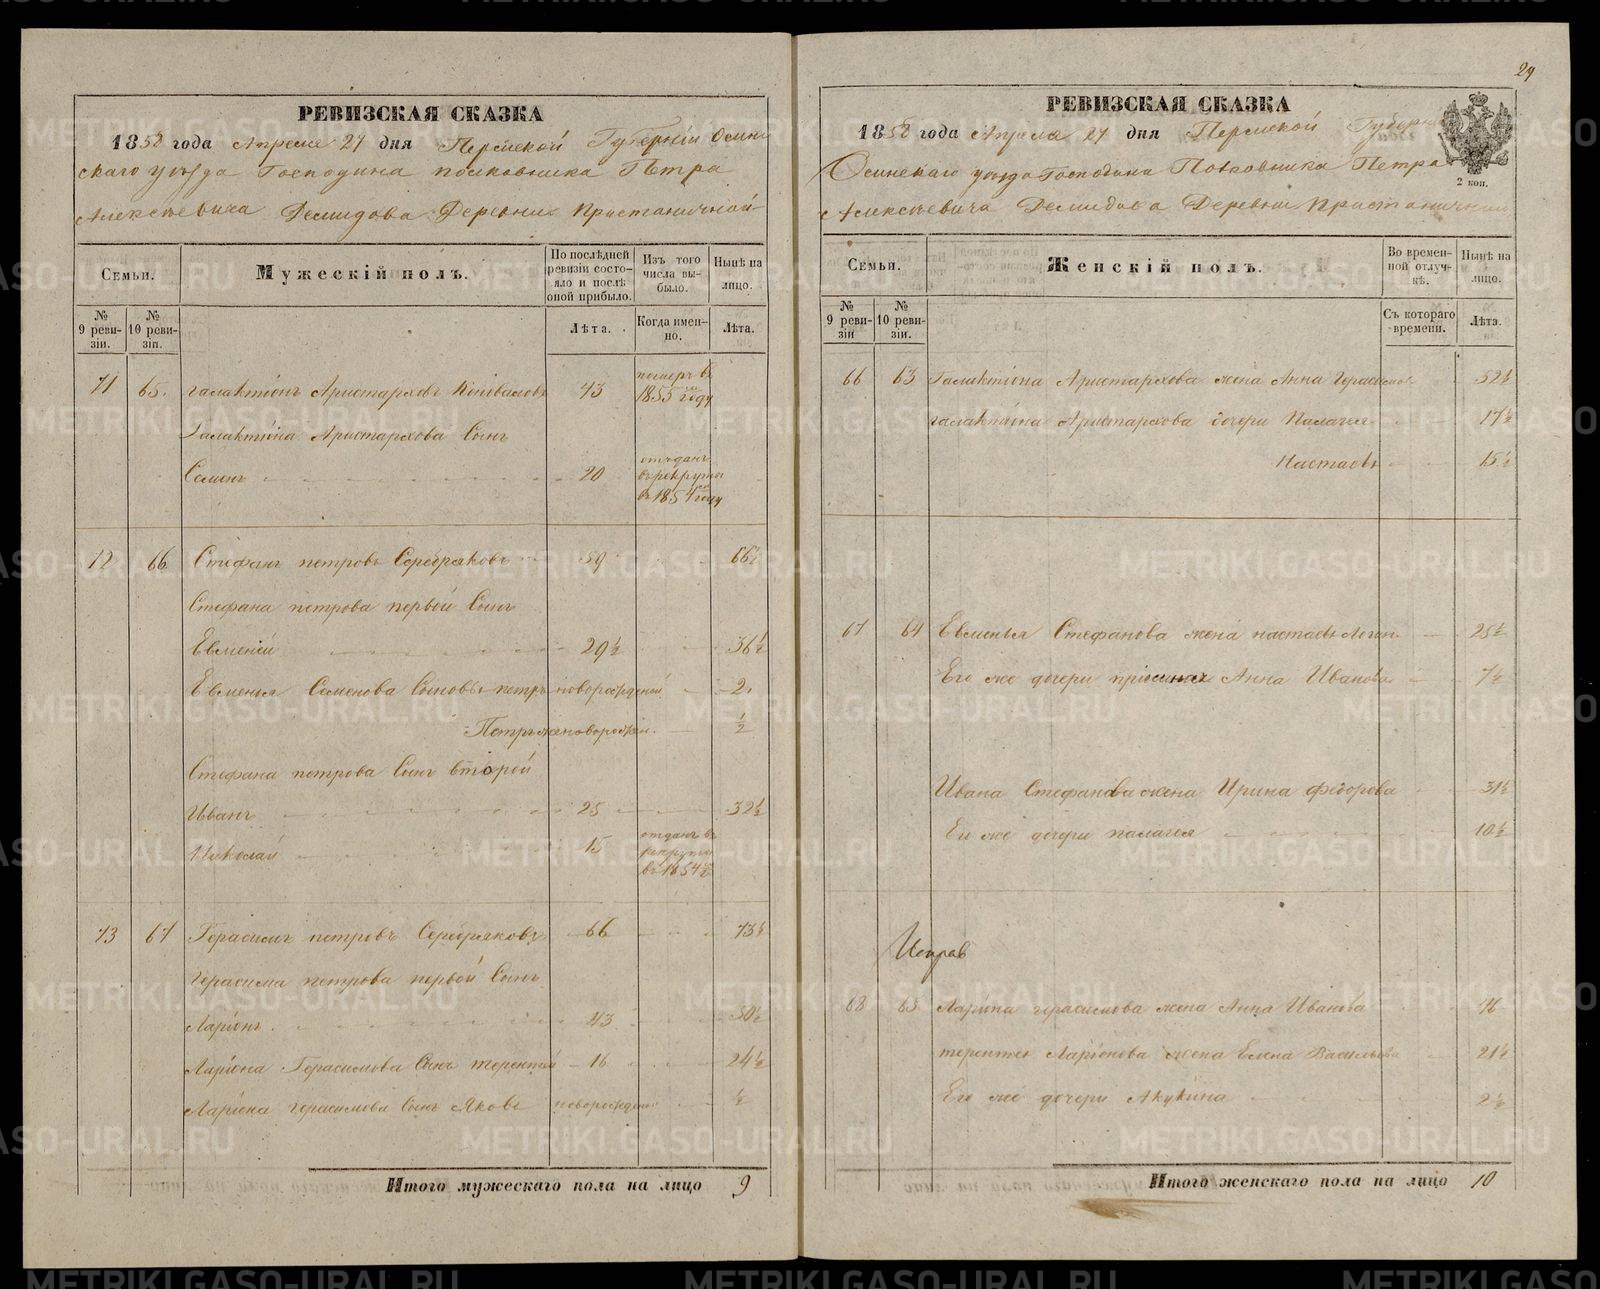 РЕВИЗСКАЯ СКАЗКА
1858 года Апреля 27 дня Пермской Губерніи Осин
скаго уѣзда Господина полковника Петра
Алексѣевича Демидова Деревни Пристаничной
Семьи.
Мужескій полъ.
По послѣдней ревизіи состояло и послѣ оной прибыло.
Изъ того числа выбыло.
Нынѣ на лицо.
№ 9 ревизіи.
№ 10 ревизіи.
Лѣта.
Когда именно.
Лѣта.
71 65. галактіонъ Аристарховъ 43 померъ въ 1855 году
Галактіона Аристархова Сынъ
Семенъ 20 отъданъ въ рекруты въ 1854 году
72 66 Стефанъ петровъ Серебряковъ 59 66½
Стефана петрова первой Сынъ
Евменій 29½ 36½
Евменья Семенова Сыновья петръ новорожденой 2.
Петръ же новорожден. ½
Стефана петрова Сынъ второй
Иванъ 25 32½
Николай 15 отданъ въ рекруты въ 1854
73 67 Герасимъ петровъ Серебряковъ 66 73½
Герасима петрова первой Сынъ
Ларіонъ. 43 50½
Ларіона Герасимова Сынъ терентей 16 24½
Ларіона герасимова Сынъ Яковъ новорожден ½
Итого мужескаго пола на лицо 9
29
РЕВИЗСКАЯ СКАЗКА
1858 года Апреля 27 дня Пермской Губерн
Осинскаго уѣзда Господина Полковника Петра
Алексѣевича Демидова Деревни Пристаничной
2 коп.
Семьи.
Женскій полъ.
Во временной отлучкѣ.
Нынѣ на лицо.
№ 9 ревизіи
№ 10 ревизіи.
Съ котораго времени.
Лѣта.
66 63 Галактіона Аристархова жена Анна Герасимов 52½
галактіона Аристархова дочери Палагея 17½
Настасья 15½
67 64 Евменья Стефанова жена настасья Логин 25½
Его же дочери Анна Иванова 7½
Ивана Стефанова жена Ирина федорова 31½
Ея же дочери палагея 10½
Исправ
68 65 Ларіона герасимова жена Анна Иванова
терентея Ларіонова жена Елена Васильева 21½
Его же дочери Акулина 2½
Итого женскаго пола на лицо 10
METRIKI.GASO-URAL.RU